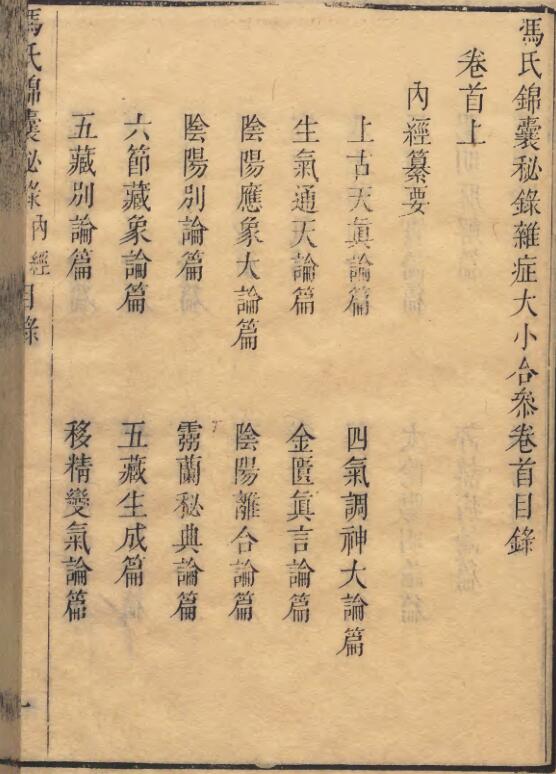 馮氏錦囊秘錄雜症大小合叅卷首目錄
卷首上
內經纂要
上古天眞論篇
四氣調神大論篇
生氣通天論篇
金匱眞言論篇
陰陽應象大論篇
陰陽離合論篇
陰陽別論篇
靈蘭秘典論篇
六節藏象論篇
五藏生成篇
五藏別論篇
移精變氣論篇
馮氏錦囊秘錄 內經 目錄 一